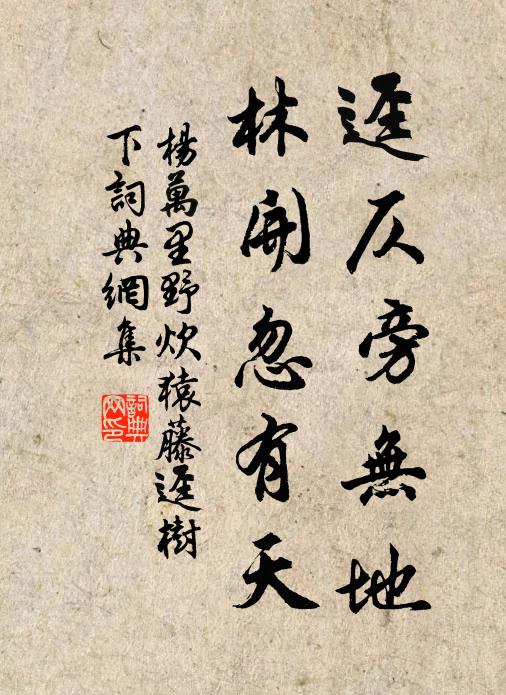 逕仄旁無地
林開忽有天
楊萬里野炊猿藤逕樹
下詞典網集
詞典網印